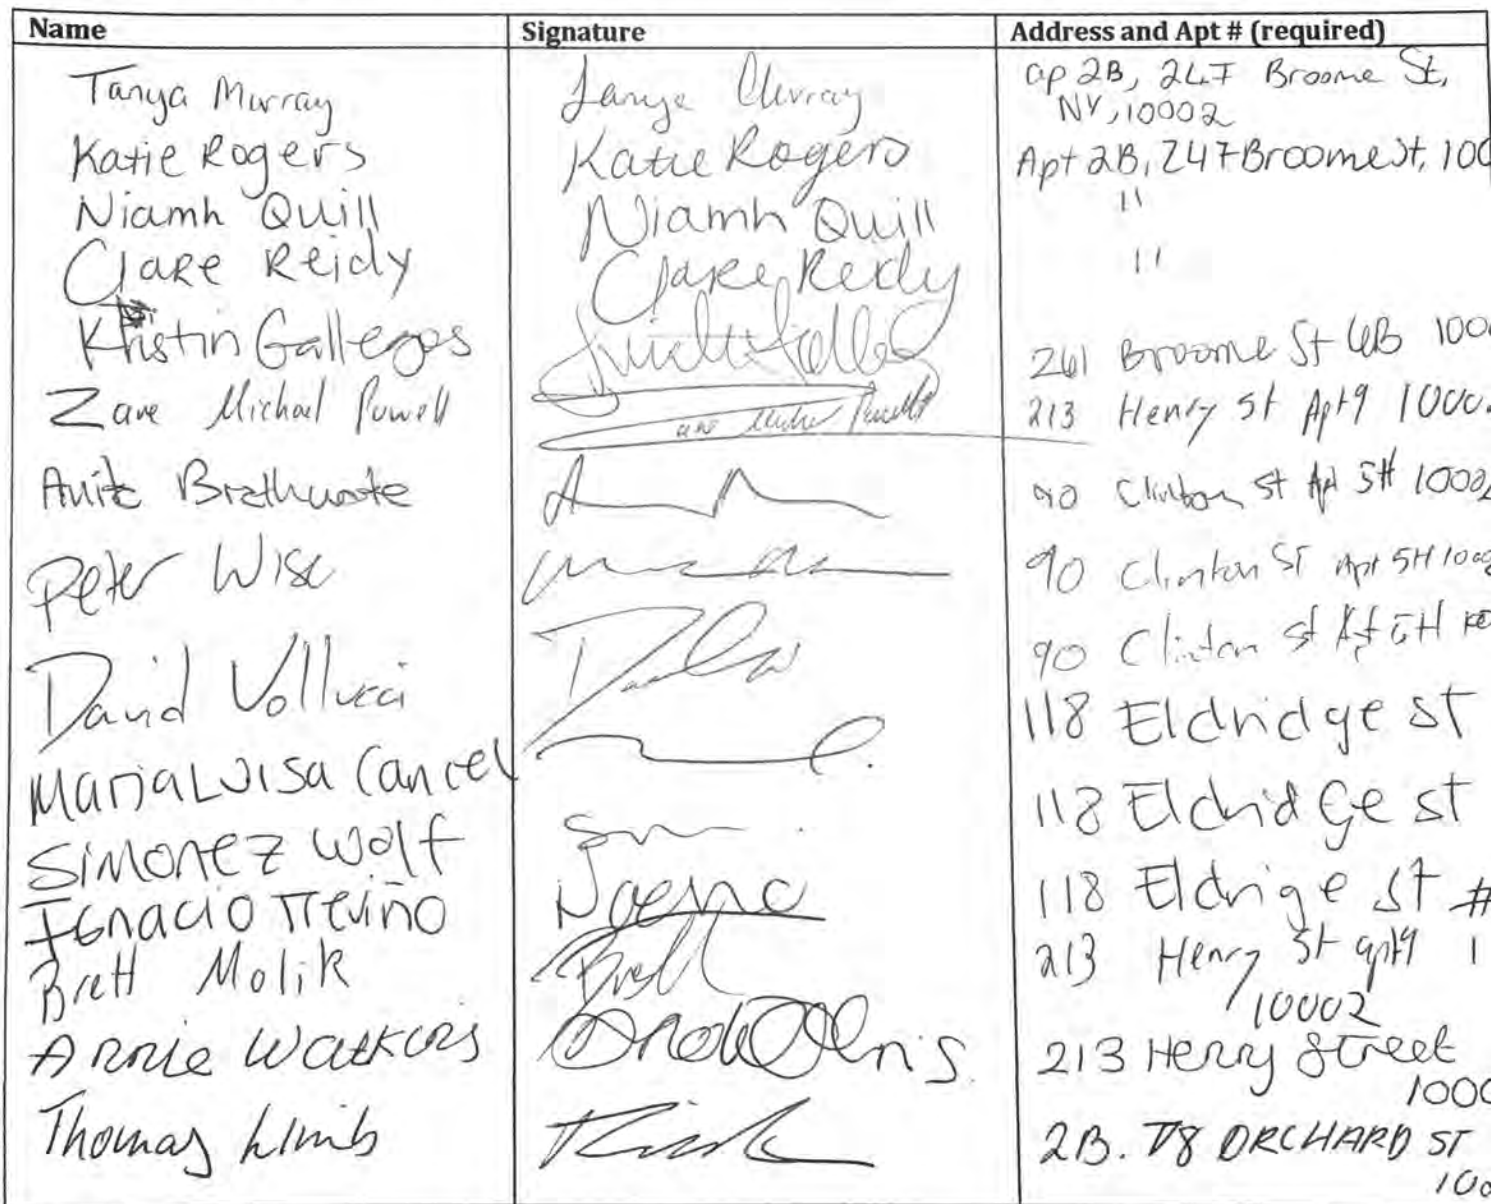 Name Signature Address and Apt # (required)
Tanya Murray Tanya Murray ap 2B, 247 Broome St,
NY, 10002
Katie Rogers Katie Rogers Apt 2B, 247 Broome St, 100
Niamh Quill Niamh Quill "
Clare Reidy Clare Reidy "
Kristin Gallegos 261 Broome St 6B 100
Zane Michael Powell Michael Powell 213 Henry St Apt 9 1000
Anita Brathwaite 90 Clinton St Apt 5H 10002
Peter Wise 90 Clinton St Apt 5H 1000
David Vollucci 90 Clinton St Apt 5H
118 Eldridge St
Maria Luisa Cancel
118 Eldridge St
Simonez Wolf
118 Eldrige St #
Ignacio Treviño
Brett Molik Brett 213 Henry St apt 9 1
10002
Annie Watkins 213 Henry Street
1000
Thomas 2B. 78 ORCHARD ST
100